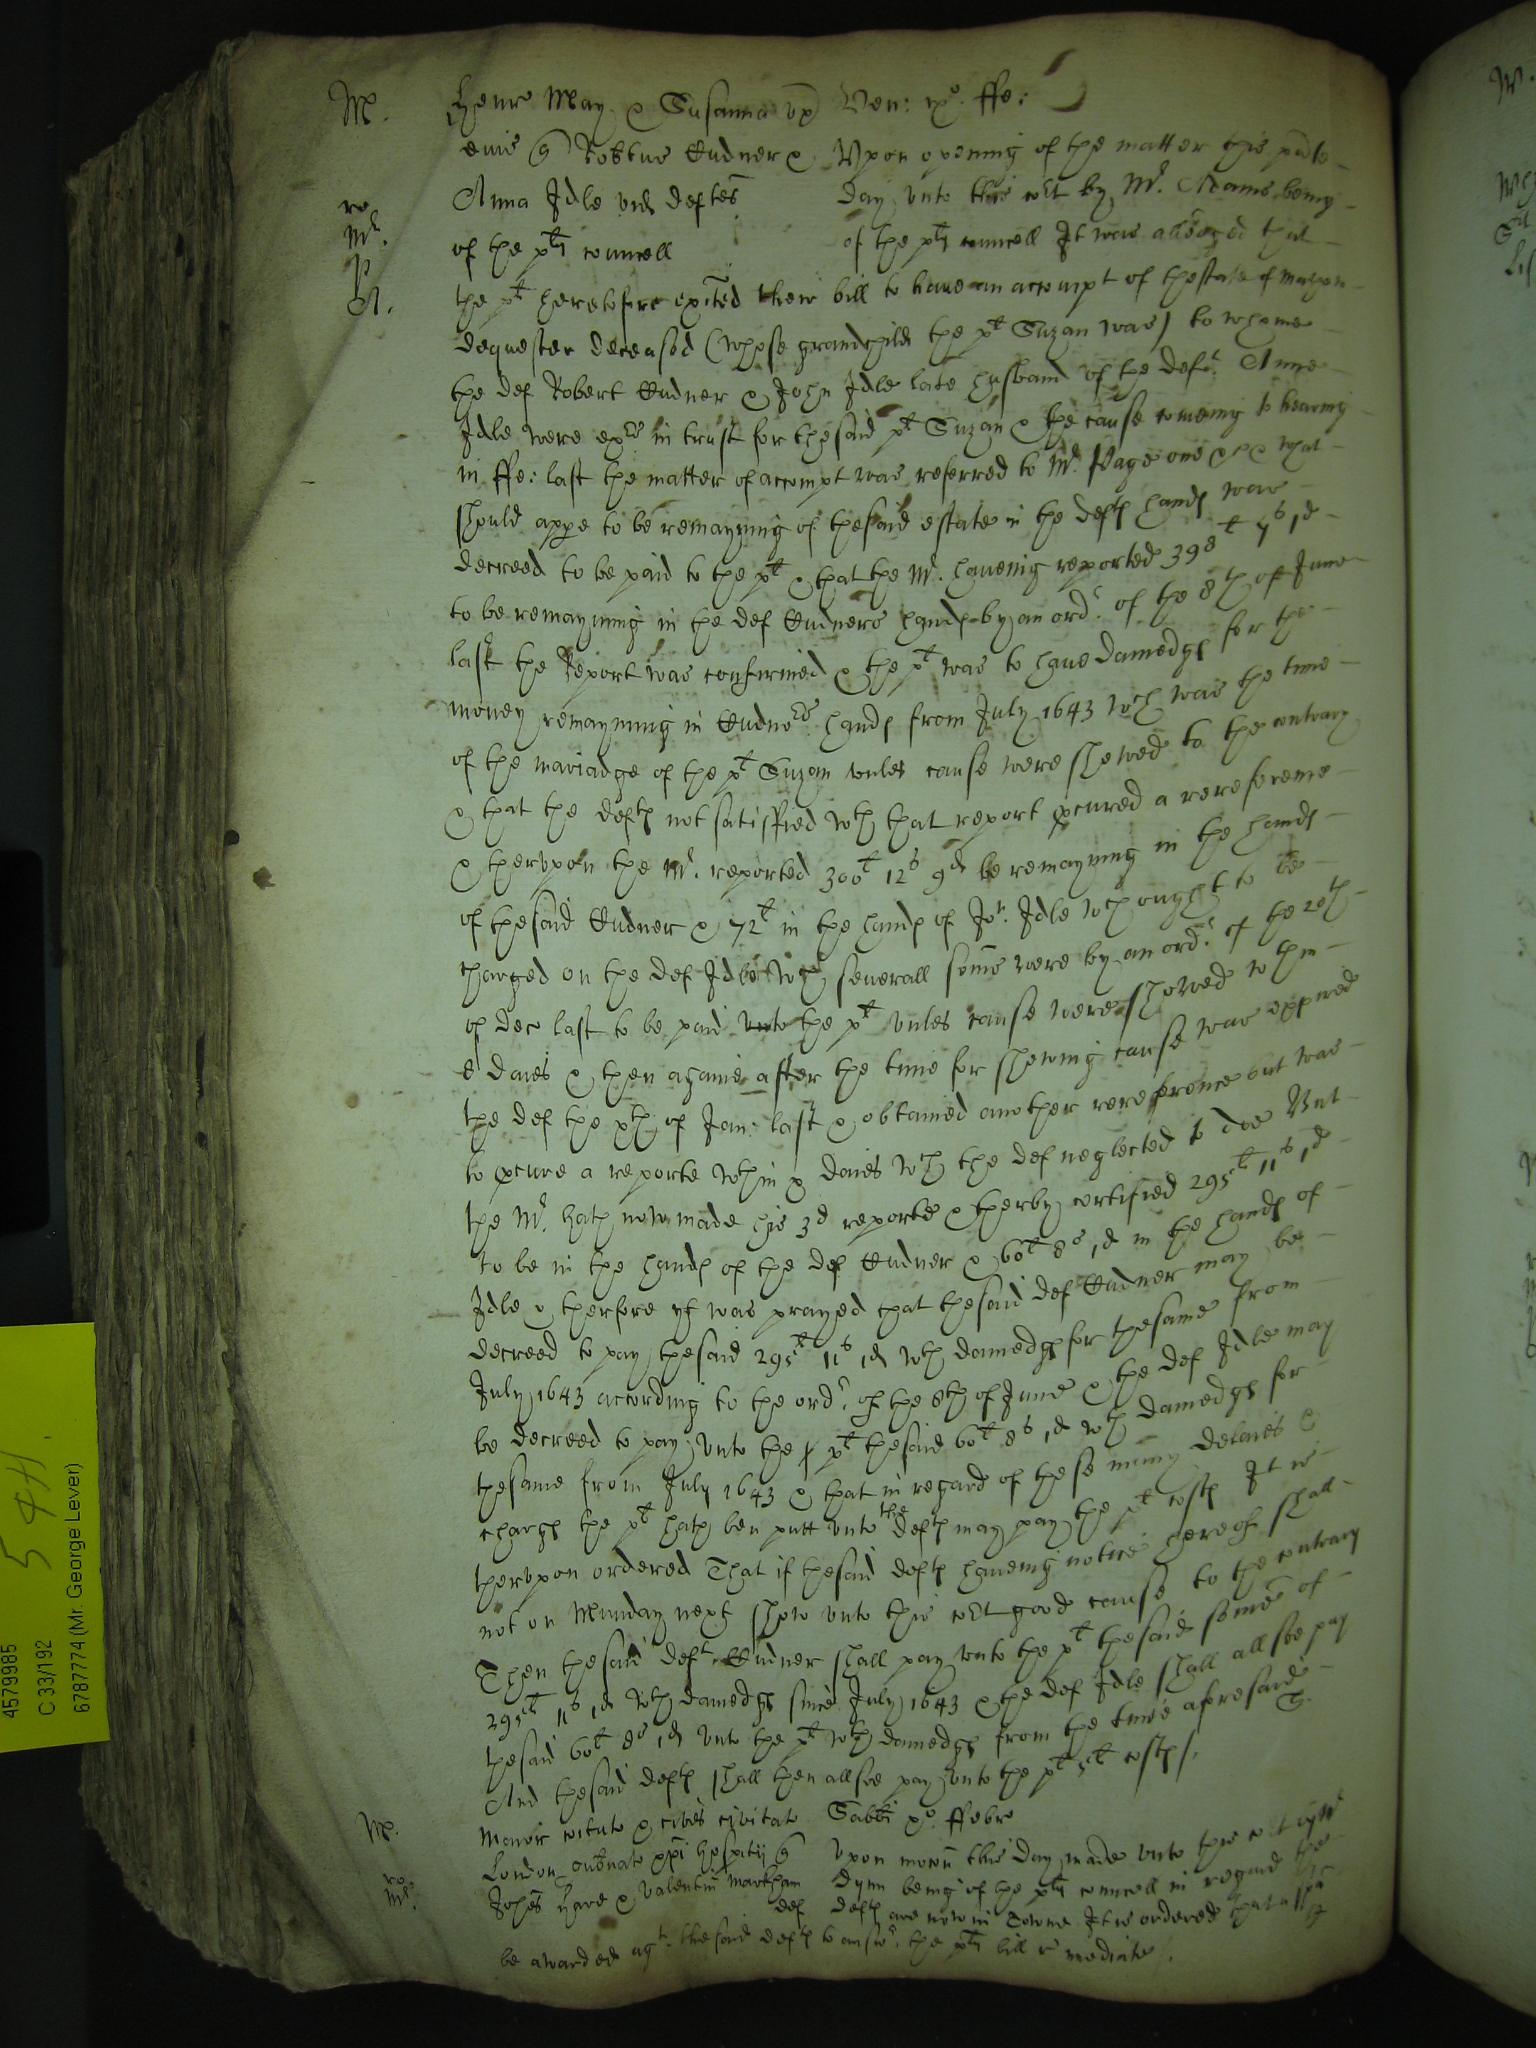 M. Henr May & Susanna ux Ven: ixo. ffe:
eius q Robtus Kudner & Vpon opening of the matter this pnte
Anna Idle vid deftes day vnto this cort by Mr. Adams being
ro
Mr.
of the plts councell of the plts councell It was alleaged that
P
A.
the plt heretofore exited their bill to haue an accompt of thestate of
Dequester deceased (whose grandchild the plt Suzan was) to whome
the def Robert Kudner & John Idle late husband of the deft. Anne
Idle were exrs in trust for thesaid plt Suzan & the cause comeing to hearing
in ffe: last the matter of accompt was referred to Mr. Page one &c & what
should appe to be remayning of thesaid estate in the defts hands was
decreed to be paid to the plt & that the Mr. haueing reported 398l 4s 1d
to be remayning in the def Kudners hands by an ordr. of the 8th of June
last the Report was confirmed & the plt was to haue damedgs for the
money remayning in Kudners hands from July 1643 wch was the time
of the mariadge of the plt Suzan vnles cause were shewed to the contrary
& that the defts not satisffied wth that report pcured a rereference
& thervpon the Mr. reported 300l 12s 9d be remayning in the hands
of thesaid Kudner & 72l in the hands of Jon. Idle wch ought to be
charged on the def Idle wch seuerall soms were by an ordr. of the 20th
of dec last to be paid vnto the plt vnles cause were showed wthin
8 daies & then againe after the time for shewing cause was expired
the def the xth of Jan: last & obtained another rereference but was
to pcure a reporte wthin x daies wch the def neglected to doe But
the Mr. hath now made his 3d reporte & therby certified 295l 11s 1d
to be in the hands of the def Kudner & 60l 8s 1d in the hands of
Idle & therfore yt was prayed that thesaid def Kudner may be
decreed to pay thesaid 295l 11s 1d wth damedgs for thesame from
July 1643 according to the ordr. of the 8th of June & the def Idle may
be decreed to pay vnto the plt thesaid 60l 8s 1d wth damedgs for
thesame from July 1643 & that in regard of these many delaies &
chargs the plt hath ben putt vnto the defts may pay the plt costs It is
thervpon ordered That if thesaid defts haueing notice hereof shall
not on Munday next shew vnto this cort good cause to the contrary
Then thesaid deft. Kudner shall pay vnto the plt thesaid some of
295l 11s 1d wth damedgs since July 1643 & the def Idle shall allsoe pay
thesaid 60l 8s 1d vnto the plt wth damedgs from the time aforesaid
And thesaid defts shall then allsoe pay vnto the plt 5l costs /.
M. Maior coitate & cives civitat Sabbti xo. ffebr
London gubnat xpi hospitij q Vpon mocon this day made vnto this cort by Mr
ro
Mr.
Johes Hare & Valentin Markham def Dynn being of the plts councell in regard the
defts are now in Towne It is ordered that a spa
be awarded agt. thesaid defts to answr. the plts bill imediate.
4579985
C 33/192
6787774 (Mr. George Lever)